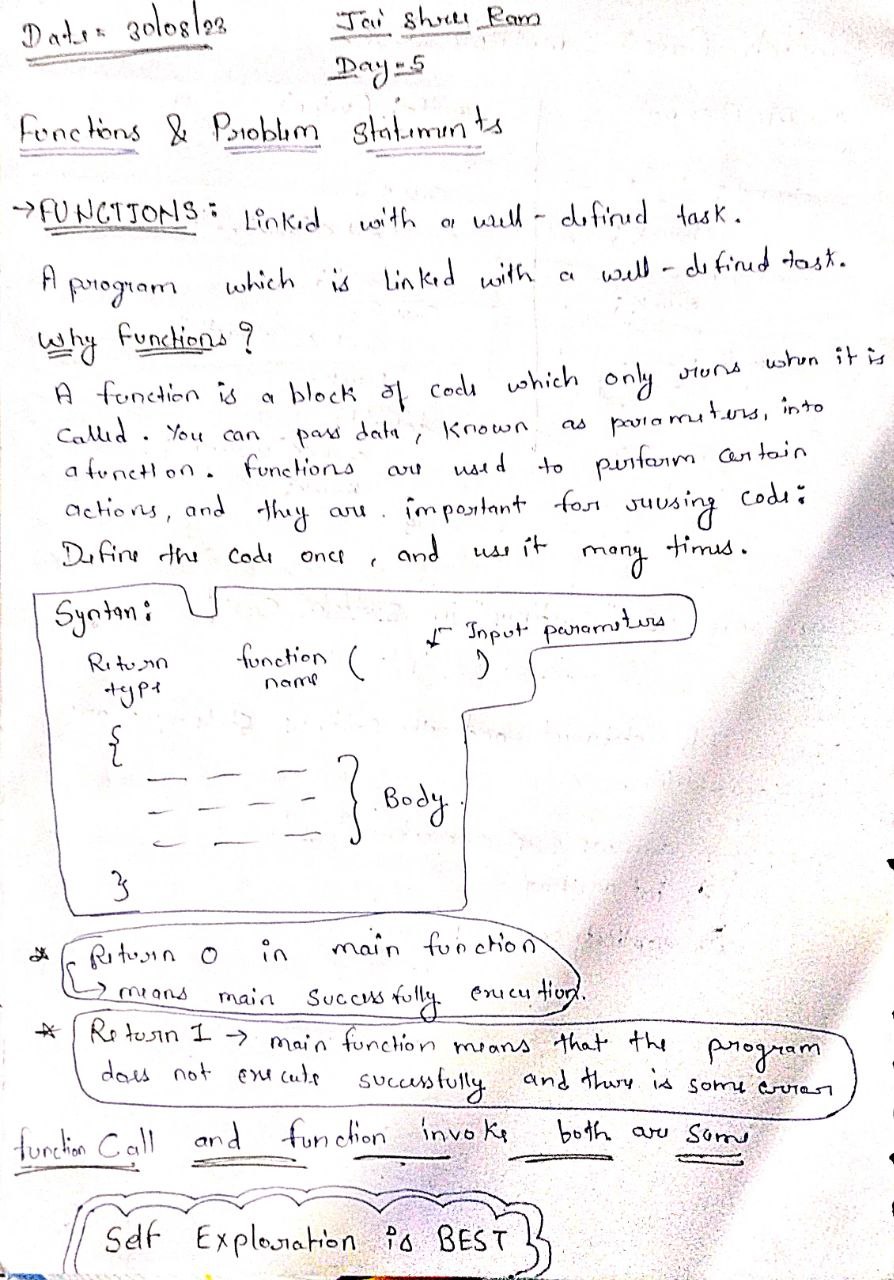 Date = 30/08/23
Jai Shree Ram
Day = 5
Functions & Problem statements
→ FUNCTIONS : Linked with a well - defined task.
A program which is Linked with a well - defined task.
Why functions ?
A function is a block of code which only runs when it is
called . You can pass data , known as parameters, into
a function . functions are used to perform certain
actions, and they are . important for reusing code :
Define the code once , and use it many times.
Syntax :
↓ Input parameters
Return function ( )
type name
{
} Body
}
* Return 0 in main function
→ means main successfully execution.
* Return 1 → main function means that the program
does not execute successfully and there is some error
function Call and function invoke both are same
Self Exploration is BEST